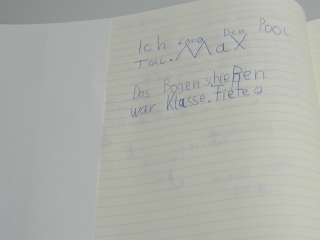 Ich fand Den Pool
Toll. Max
Das Bogenschießen
war Klasse. Fiete